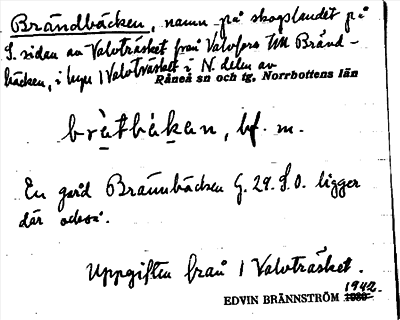 Brändbäcken, namn på skogslandet på
S. sidan av Valvträsket från Valvfors till Bränd-
bäcken, i byn 1 Valvträsket i N. delen av
Råneå sn och tg, Norrbottens län
brä̀tbä́kan, bf. m.
En gård Brännbäcken G. 29. S.O. ligger
där också.
Uppgiften från 1 Valvträsket.
EDVIN BRÄNNSTRÖM 1942.